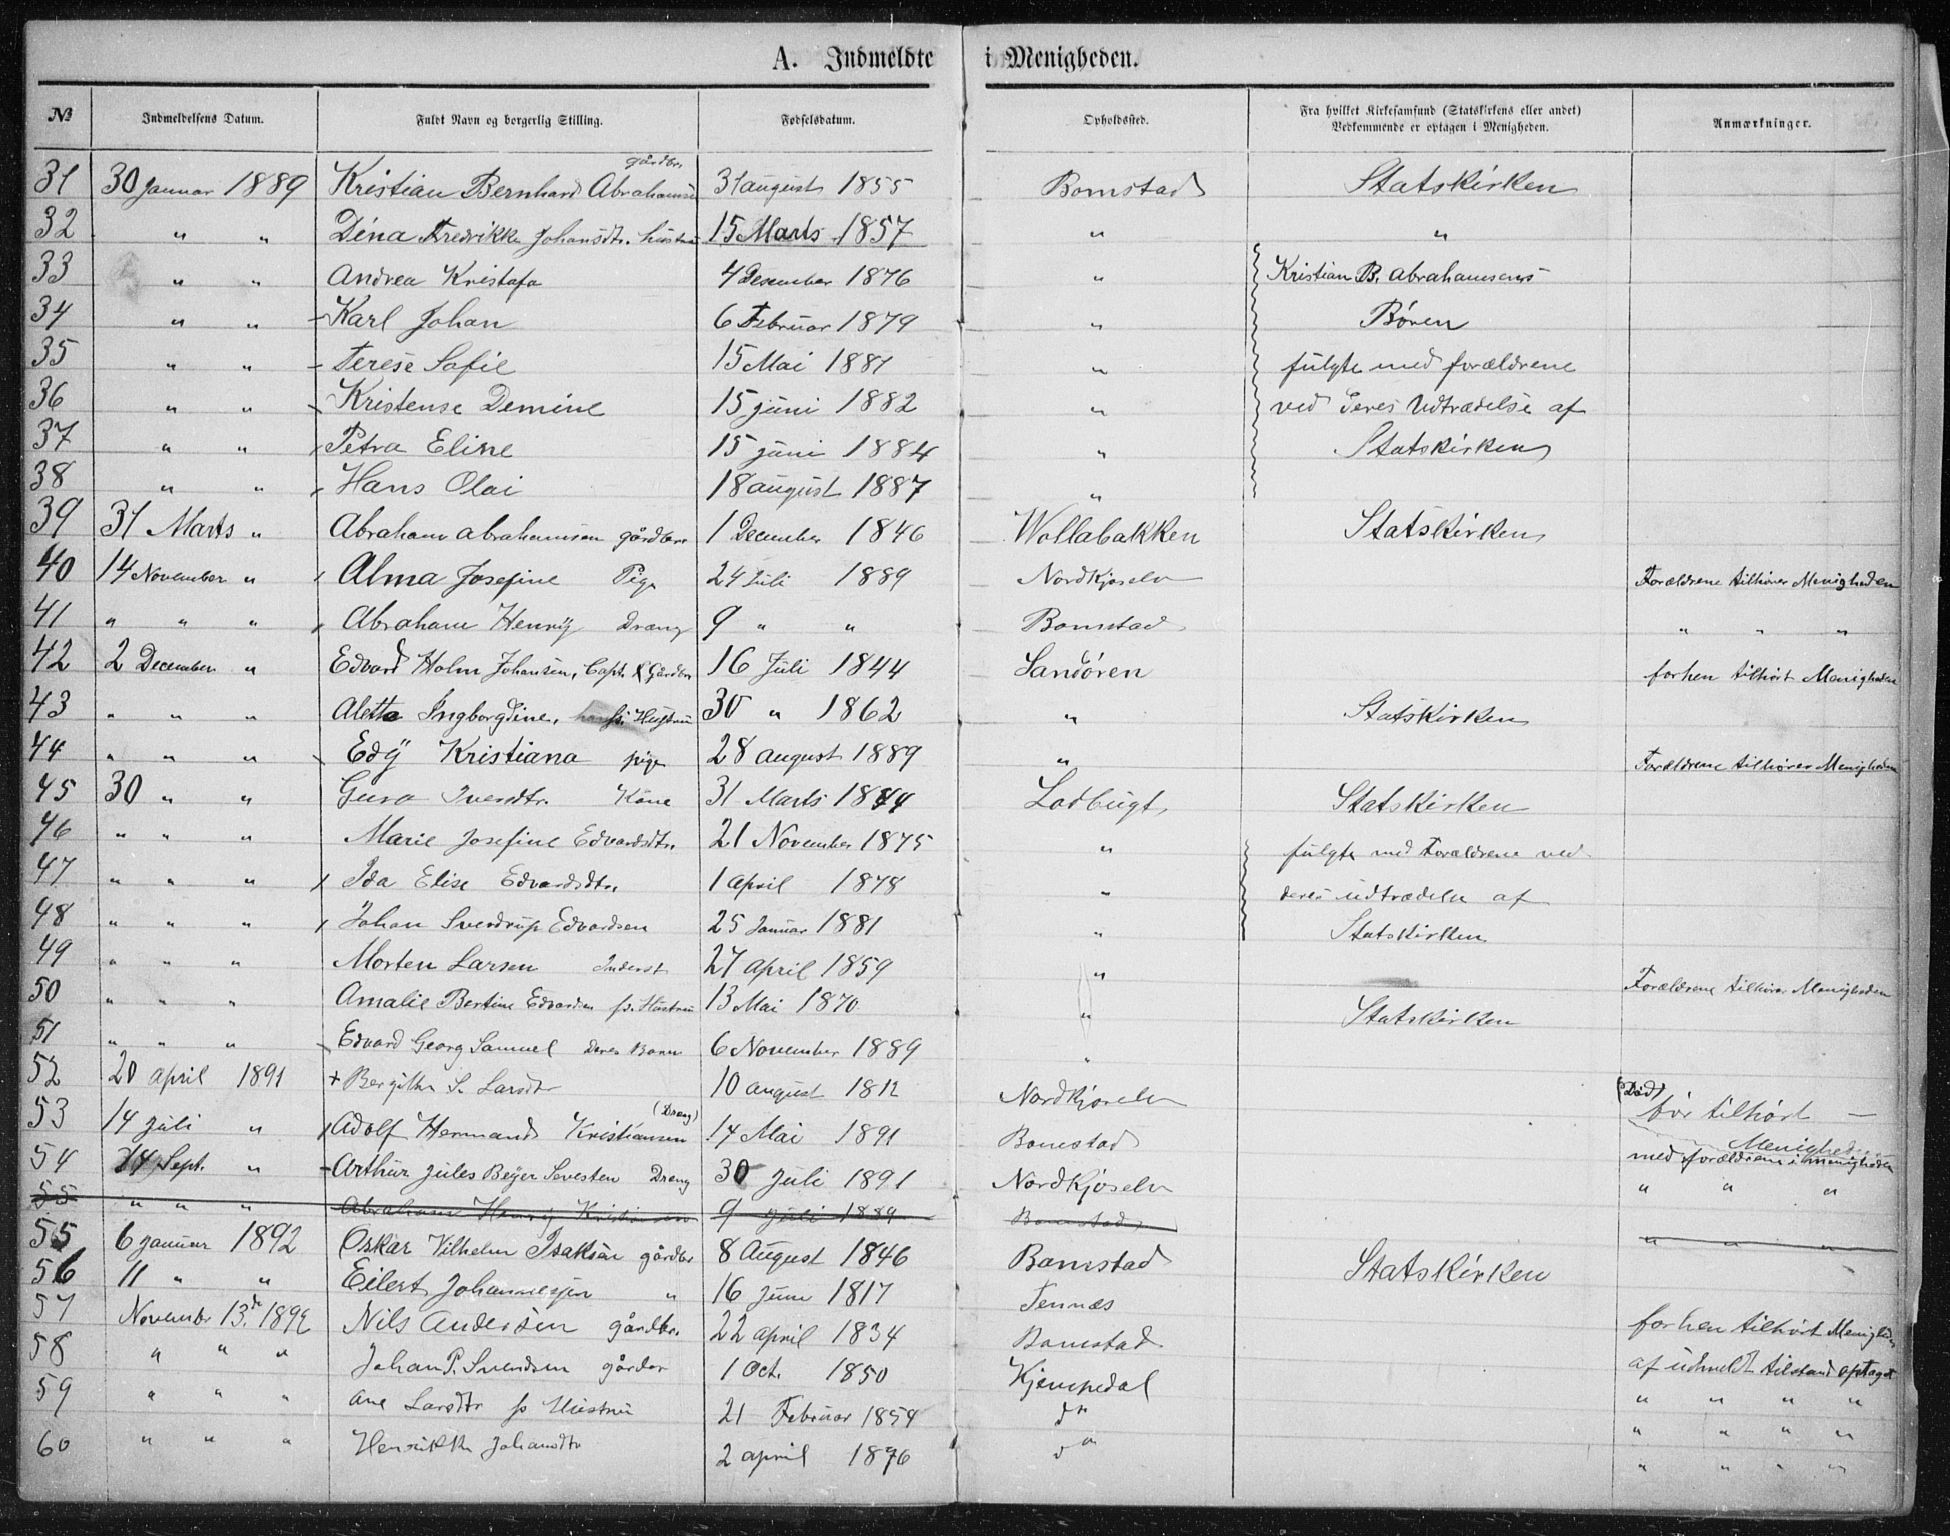 A. Indmeldte i Menigheden.
№ Indmeldelsens Datum. Fuldt Navn og borgerlig Stilling. Fødselsdatum. Opholdssted. Fra hvilket Kirkesamfund (Statskirkens eller andet) Vedkommende er optagen i Menigheden. Anmærkninger.
31 30 Januar 1889 Kristian Bernhard Abrahamsen gårdbr. 31 august 1855 Bomstad Statskirken
32 " " Dina Fredrikke Johansdtr. hustru 15 Marts 1857 " "
33 " " Andrea Kristofa 4 Desember 1876 " Kristian B. Abrahamsens
34 " " Karl Johan 6 Februar 1879 " Børen
35 " " Terese Sofie 15 Mai 1881 " fulgte med forældrene
36 " " Kristense Demine 15 juni 1882 " ved Deres Udtrædelse af
37 " " Petra Eline 15 juni 1884 " Statskirken
38 " " Hans Olai 18 august 1887 "
39 31 Marts " Abraham Abrahamsen gårdbr. 1 December 1846 Wollabakken Statskirken
40 14 November " Alma Josefine Pige 24 Juli 1889 Nordkjoseln Forældrene tilhører Menigheden
41 " " " Abraham Henrÿ Dreng 9 " " Bomstad " " "
42 2 December " Edvard Holm Johansen, Capt. & Gårdbr. 16 Juli 1844 Sandøren forhen tilhørt Menigheden
43 " " " Alette Ingborgdine, fs. Hustru 30 " 1862 " Statskirken
44 " " " Edÿ Kristiana pige 28 august 1889 " Forældrene tilhører Menigheden
45 30 " " Guro Iversdtr. Kone 31 Marts 1844 Lodbugt Statskirken
46 " " " Marie Josefine Edvardsdtr. 21 November 1875 " fulgte med Forældrene ved
47 " " " Ida Elise Edvardsdtr. 1 april 1878 " deres udtrædelse af
48 " " " Johan Sverdrup Edvardsen 25 Januar 1881 " Statskirken
49 " " " Morten Larsen Inderst 27 april 1859 " Forældrene tilhører Menigheden
50 " " " Amalie Bertine Edvardsen fs. Hustru 13 Mai 1870 " Statskirken
51 " " " Edvard Georg Samuel Deres Barn 6 November 1889 "
52 20 april 1891 + Bergithe S. Larsdtr 10 august 1812 Nordkjoseln (Død) før tilhørt — Menigheden
53 14 juli " Adolf Hermand Kristiansen (Dreng) 14 Mai 1891 Bomstad med forældrene i menigheden
54 14 Sept. " Arthur Jules Beÿer Sevesten Dreng 30 juli 1891 Nordkjoseln " " "
55 " " " Abraham Henrÿ Kristiansen 9 juli 1889 Bomstad " " "
55 6 januar 1892 Oskar Vilhelm Isaksen gårdbr 8 August 1846 Bomstad Statskirken
56 11 " " Eilert Johannesen " 16 Juni 1817 Tennæs
57 Novembr 13. de 1892 Nils Andersen gårdbr. 22 april 1834 Bomstad forhen tilhørt Menigheden
58 " " " Johan P. Svendsen gårdbr 1 Oct. 1850 Kjempedal af udmeldt tilstand optaget
59 " " " Ane Larsdtr fs Hustru 21 Februar 1854 do " " " "
60 " " " Henrikke Johansdtr 2 april 1876 do " " " "
" " " "